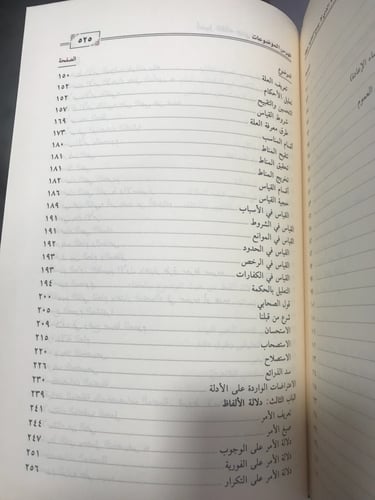 فهرس الموضوعات ٥٢٥
الموضوع الصفحة
تعريف العلة ١٥٠
تعليل الأحكام ١٥٢
التحسين والتقبيح ١٥٢
شروط القياس ١٥٧
طرق معرفة العلة ١٦٩
أقسام المناسب ١٧٣
تنقيح المناط ١٨٠
تحقيق المناط ١٨١
تخريج المناط ١٨١
أقسام القياس ١٨٢
حجية القياس ١٨٦
القياس في الأسباب ١٨٩
القياس في الشروط ١٩١
القياس في الموانع ١٩١
القياس في الحدود ١٩٢
القياس في الرخص ١٩٣
القياس في الكفارات ١٩٣
التعليل بالحكمة ١٩٤
قول الصحابي ٢٠٠
شرع من قبلنا ٢٠٥
الاستحسان ٢٠٩
الاستصحاب ٢١٥
الاستصلاح ٢٢٠
سد الذرائع ٢٢٦
الاعتراضات الواردة على الأدلة ٢٣٠
الباب الثالث: دلالة الألفاظ ٢٣٩
تعريف الأمر ٢٤١
صيغ الأمر ٢٤٤
دلالة الأمر على الوجوب ٢٤٧
دلالة الأمر على الفورية ٢٥١
دلالة الأمر على التكرار ٢٥٦
العموم